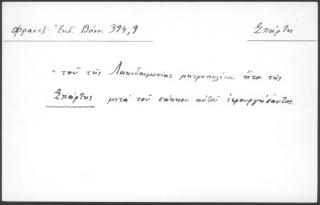 Φραντζ. Ἔκδ. Βόνν. 394,9 Σπάρτη
"τοῦ τῆς Λακεδαιμονίας μητροπολίτου ἤτοι τῆς
Σπάρτης μετὰ τοῦ σάκκου αὐτοῦ ἱερουργήσαντος.